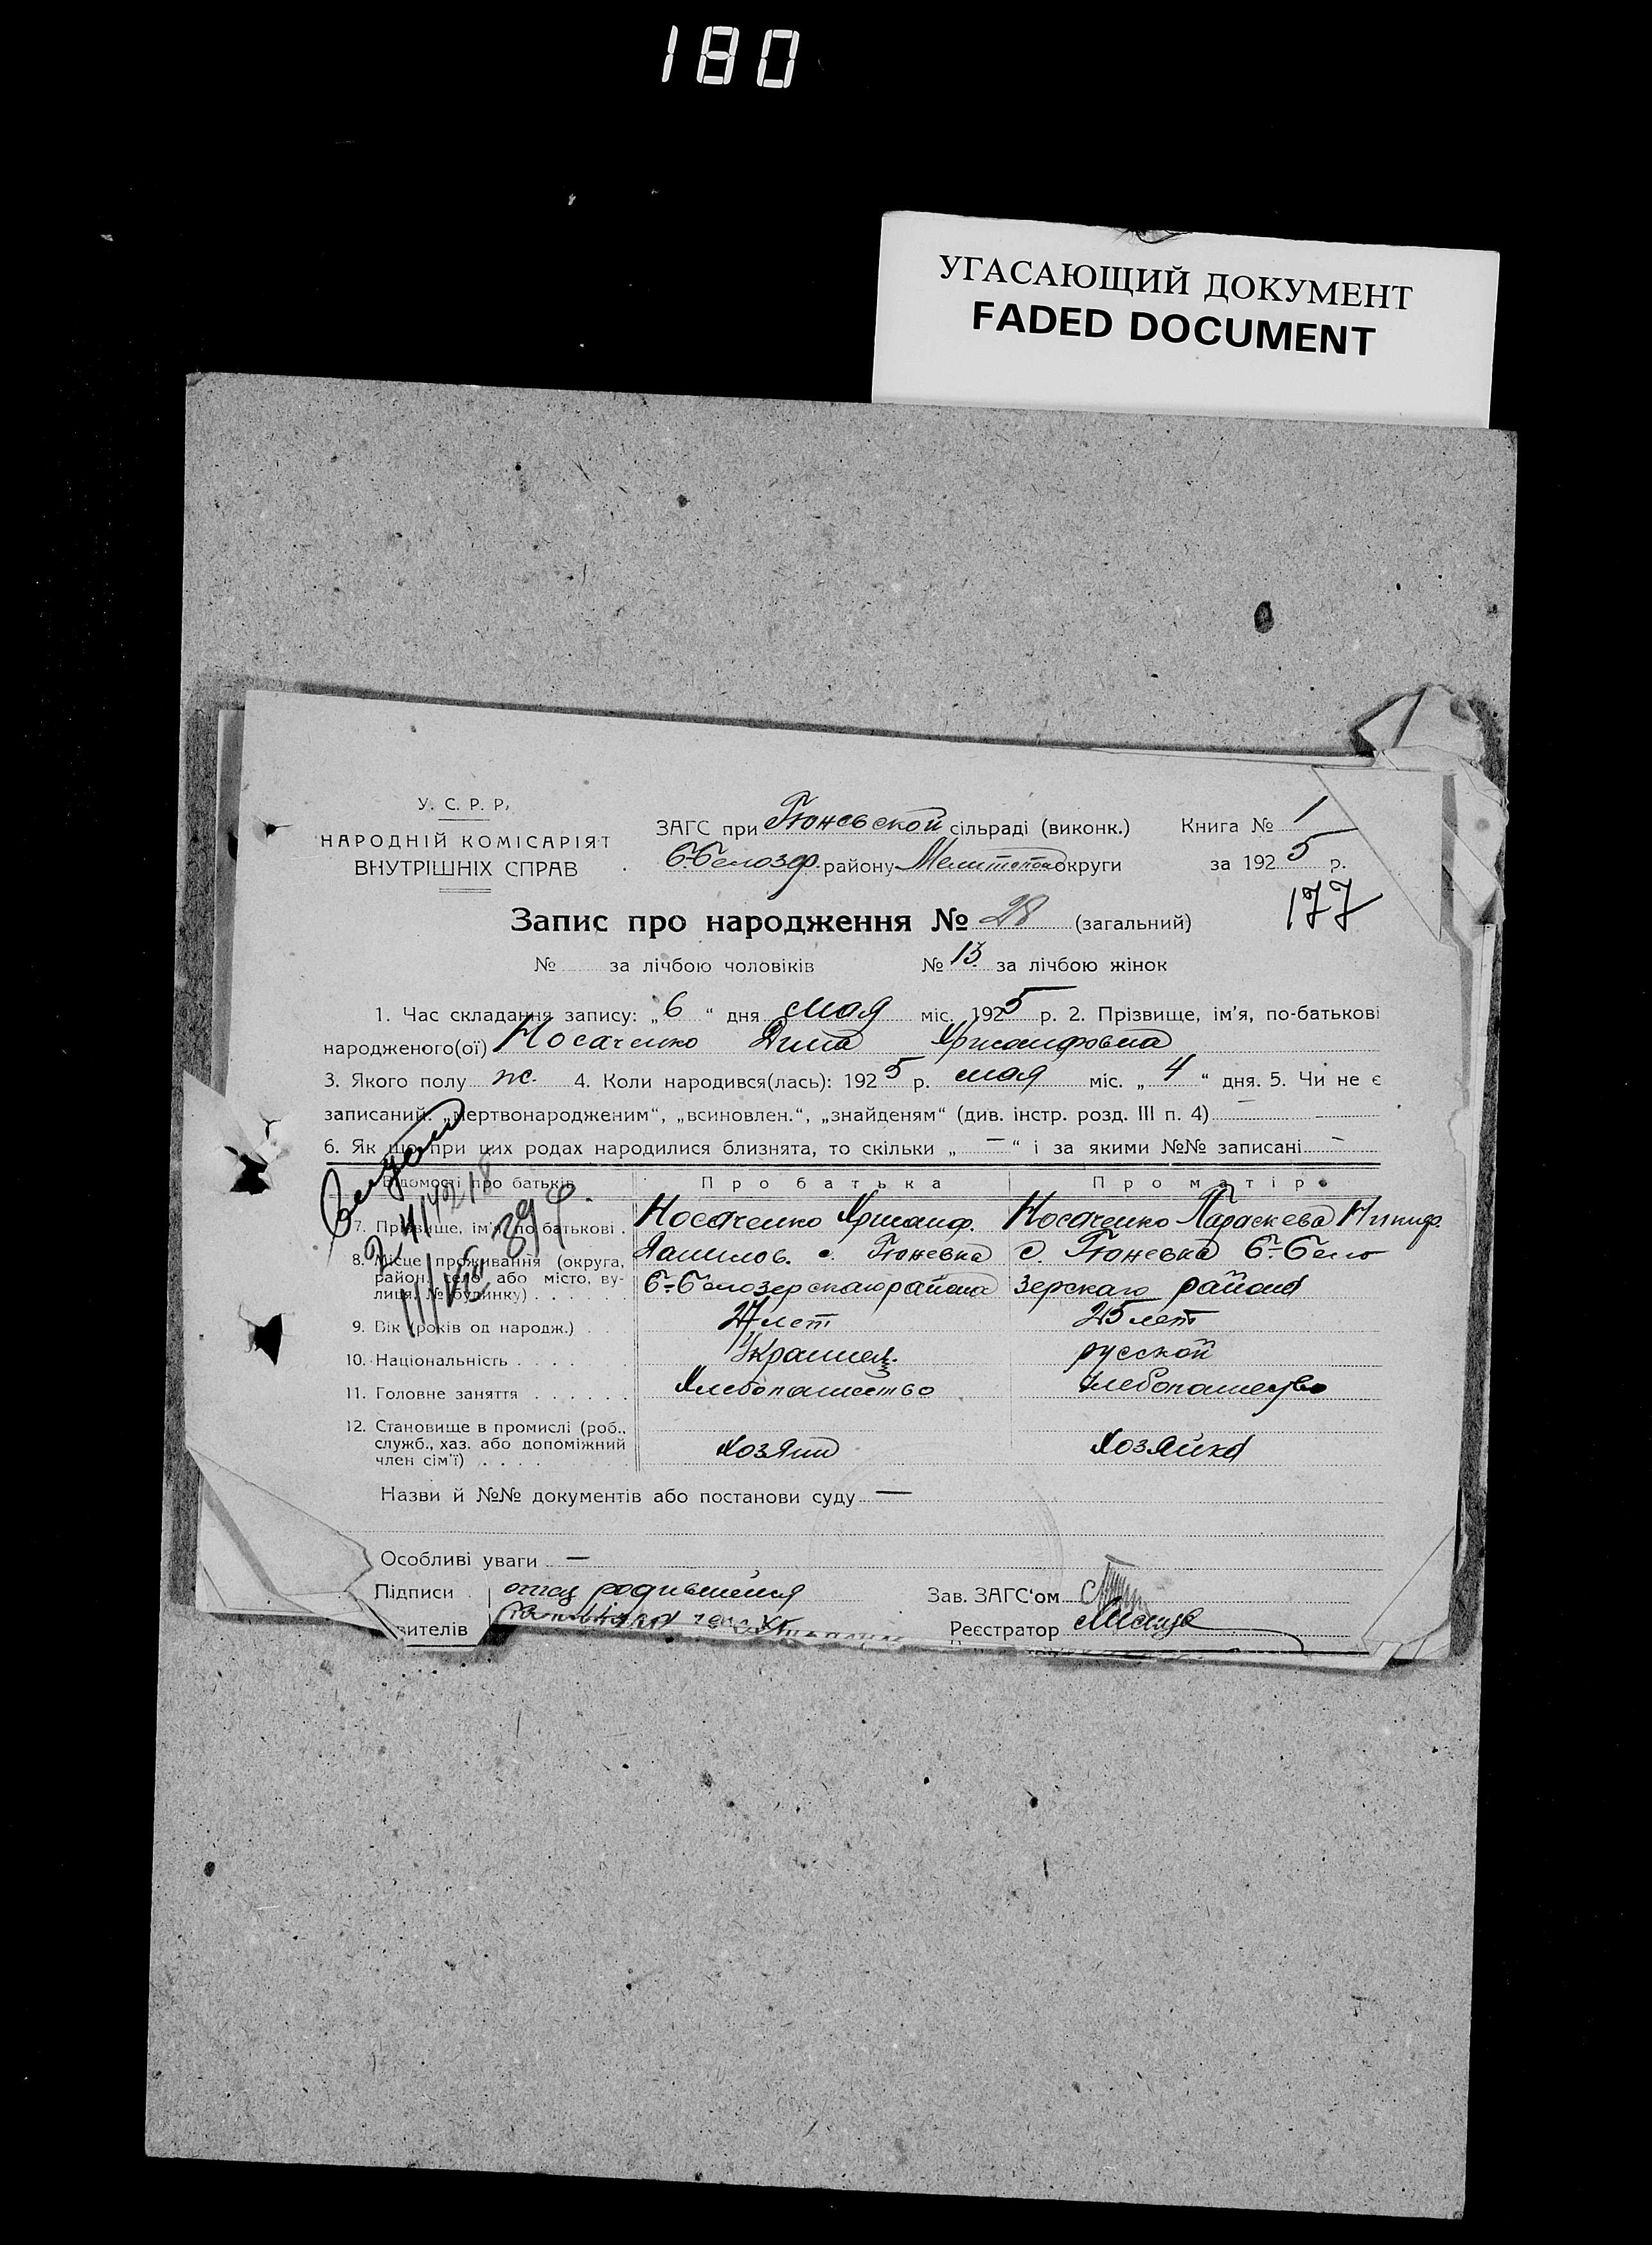 180
УГАСАЮЩИЙ ДОКУМЕНТ
FADED DOCUMENT
У. С. Р. Р.
НАРОДНІЙ КОМІСАРІЯТ
ВНУТРІШНІХ СПРАВ
ЗАГС при Гюневской сільраді (виконк.) Книга № 1
Б-Белозер. району Мелитопол округи за 1925 р.
177
Запис про народження № 28 (загальний)
№ за лічбою чоловіків № 13 за лічбою жінок
1. Час складання запису: „6“ дня мая міс. 1925 р. 2. Прізвище, ім'я, по-батькові
народженого(ої) Носаченко Дина Хрисанфовна
3. Якого полу ж. 4. Коли народився(лась): 1925 р. мая міс. „4“ дня. 5. Чи не є
записаний: „мертвонародженим“, „всиновлен.“, „знайденям“ (див. інстр. розд. III п. 4) —
6. Як що при цих родах народилися близнята, то скільки „—“ і за якими №№ записані —
Відомості про батьків Про батька Про матір
7. Прізвище, ім'я, по батькові . Носаченко Хрисанф. Носаченко Параскева Никиф.
8. Місце проживання (округа, с. Гюневка с. Гюневка Б-Бело
район, село або місто, ву- Б-Белозерскаго района зерскаго района
лиця, № будинку) . . . . . .
9. Вік (років од народж.) . . . 27 лет 25 лет
10. Національність . . . . Украинец. русской
11. Головне заняття . . . . . . Хлебопашество Хлебопашество
12. Становище в промислі (роб.,
служб., хаз. або допоміжний Хозяин Хозяйка
член сім'ї) . . . .
Назви й №№ документів або постанови суду —
Особливі уваги —
Підписи отец родившейся Зав. ЗАГС'ом
вителів Реєстратор